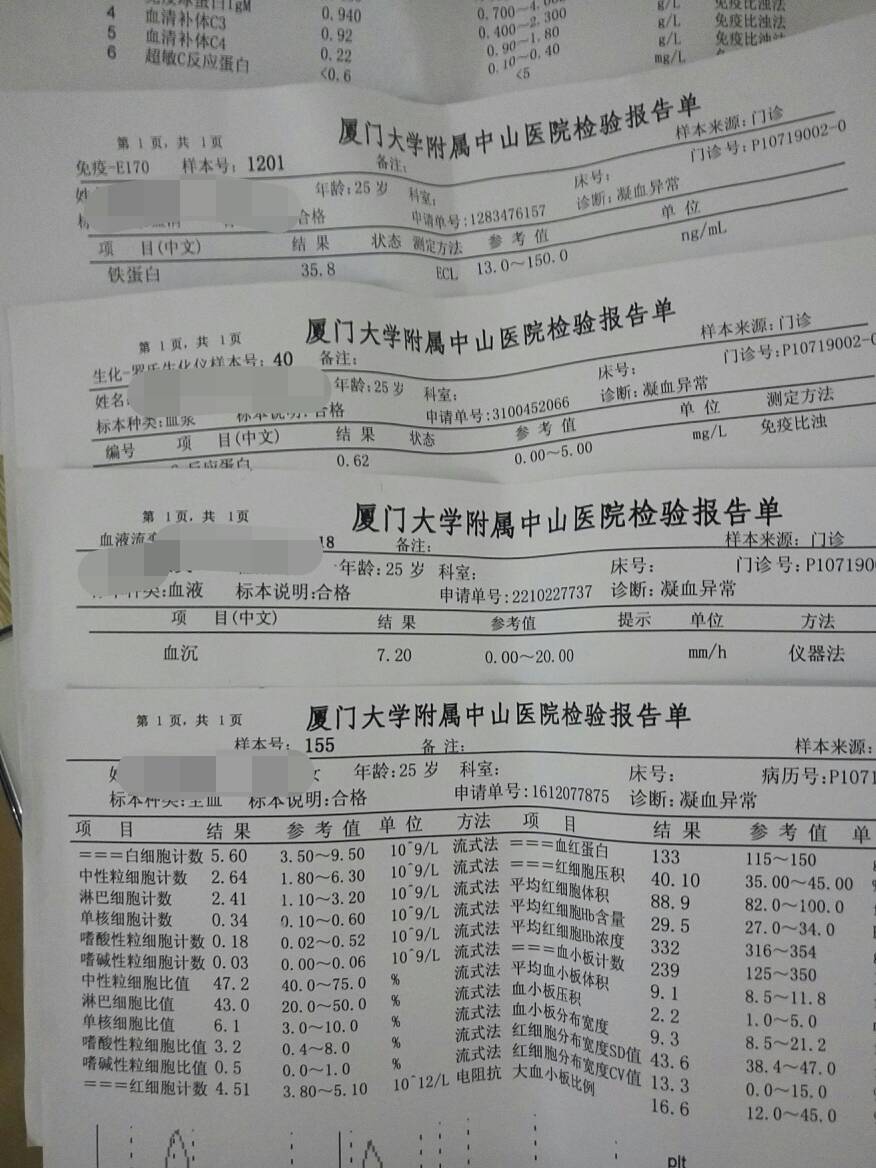 免疫球蛋白IgM
4 血清补体C3 0.940 0.700~4.000 g/L 免疫比浊法
5 血清补体C4 0.92 0.400~2.300 g/L 免疫比浊法
6 超敏C反应蛋白 0.22 0.90~1.80 g/L 免疫比浊法
<0.6 0.10~0.40 mg/L
<5
第 1 页，共 1 页 厦门大学附属中山医院检验报告单 样本来源：门诊
免疫-E170 样本号：1201 备注： 门诊号：P10719002-0
年龄：25 岁 科室： 床号：
合格 申请单号：1283476157 诊断：凝血异常
项 目(中文) 结 果 状态 测定方法 参 考 值 单 位
铁蛋白 35.8 ECL 13.0~150.0 ng/mL
第 1 页，共 1 页 厦门大学附属中山医院检验报告单 样本来源：门诊
生化-罗氏生化仪样本号：40 备注： 门诊号：P10719002-0
姓名： 年龄：25 岁 科室： 床号：
标本种类：血浆 标本说明：合格 申请单号：3100452066 诊断：凝血异常
编号 项 目(中文) 结 果 状态 参 考 值 单 位 测定方法
反应蛋白 0.62 0.00~5.00 mg/L 免疫比浊
第 1 页，共 1 页 厦门大学附属中山医院检验报告单 样本来源：门诊
血液流变 18 备注： 门诊号：P107190
年龄：25 岁 科室： 床号：
标本种类：血液 标本说明：合格 申请单号：2210227737 诊断：凝血异常
项 目(中文) 结 果 参考值 提示 单位 方法
血沉 7.20 0.00~20.00 mm/h 仪器法
第 1 页，共 1 页 厦门大学附属中山医院检验报告单
样本号：155 备 注： 样本来源：
女 年龄：25 岁 科室： 床号： 病历号：P1071
标本种类：全血 标本说明：合格 申请单号：1612077875 诊断：凝血异常
项 目 结 果 参 考 值 单 位 方法 项 目 结 果 参 考 值 单
===白细胞计数 5.60 3.50~9.50 10^9/L 流式法 ===血红蛋白 133 115~150
中性粒细胞计数 2.64 1.80~6.30 10^9/L 流式法 ===红细胞压积 40.10 35.00~45.00
淋巴细胞计数 2.41 1.10~3.20 10^9/L 流式法 平均红细胞体积 88.9 82.0~100.0
单核细胞计数 0.34 0.10~0.60 10^9/L 流式法 平均红细胞Hb含量 29.5 27.0~34.0
嗜酸性粒细胞计数 0.18 0.02~0.52 10^9/L 流式法 平均红细胞Hb浓度 332 316~354
嗜碱性粒细胞计数 0.03 0.00~0.06 10^9/L 流式法 ===血小板计数 239 125~350
中性粒细胞比值 47.2 40.0~75.0 % 流式法 平均血小板体积 9.1 8.5~11.8
淋巴细胞比值 43.0 20.0~50.0 % 流式法 血小板压积 2.2 1.0~5.0
单核细胞比值 6.1 3.0~10.0 % 流式法 血小板分布宽度 9.3 8.5~21.2
嗜酸性粒细胞比值 3.2 0.4~8.0 % 流式法 红细胞分布宽度SD值 43.6 38.4~47.0
嗜碱性粒细胞比值 0.5 0.0~1.0 % 流式法 红细胞分布宽度CV值 13.3 0.0~15.0
===红细胞计数 4.51 3.80~5.10 10^12/L 电阻抗 大血小板比例 16.6 12.0~45.0
plt